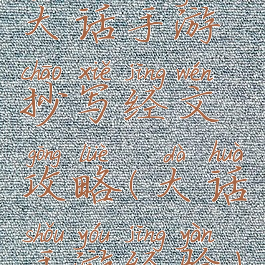 大话手游
chāo xiě jīng wén
抄写经文
gōng lüè dà huà
攻略(大话
shǒu yóu jīng yàn